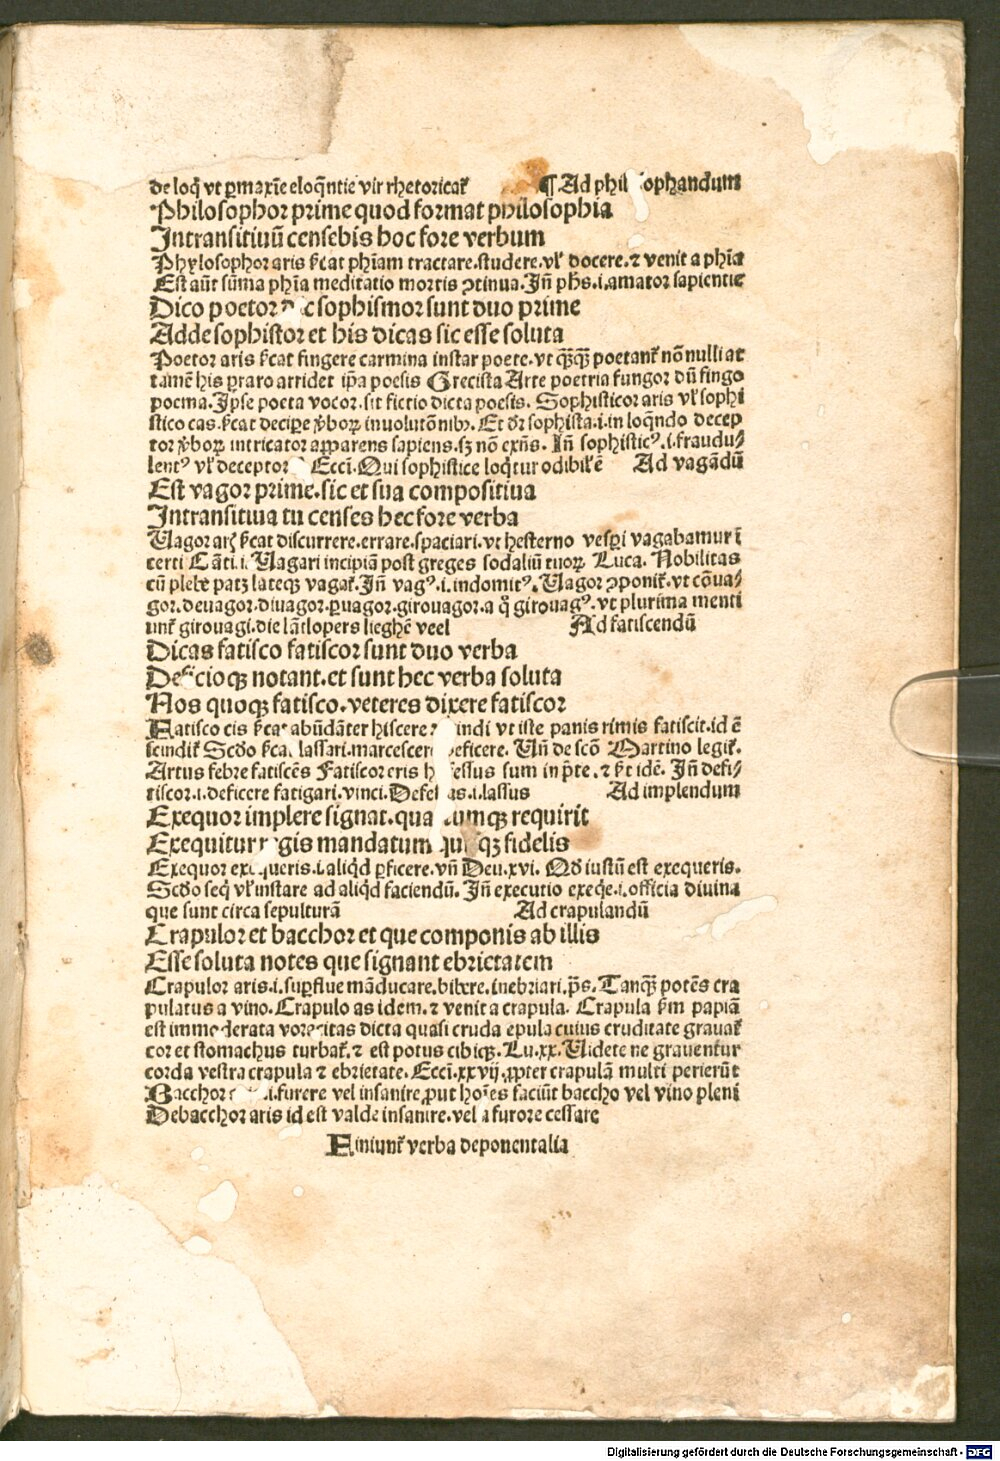 de loq̄ vt ꝑmaxīe eloq̄ntie vir rhetoricaꝉ ¶ Ad phil ophandum
Philosophor prime quod format philosophia
Intransitiuū censebis hoc fore verbum
Phylosophor aris ẜcat phīam tractare.studere.vꝉ docere.⁊ venit a phīa
Est aūt sūma phīa meditatio mortis ꝯtinua.Iñ phs̄.i.amator sapientie
Dico poetor c sophismor sunt duo prime
Adde sophistor et his dicas sic esse soluta
Poetor aris ẜcat fingere carmina instar poete.vt qͣ̄qͣ̄ poetanꝉ nō nulli at
tamē his ꝑraro arridet ip̄a poesis Grecista Arte poetria fungor dū fingo
poema.Ipse poeta vocor.sit fictio dicta poesis. Sophisticor aris vꝉ sophi
stico cas.ẜcat deciꝑe v̓boꝝ inuolutōnibꝰ. Et dr̄ sophista.i.in loq̄ndo decep
tor v̓boꝝ intricator apparens sapiens.sꝫ nō exn̄s. Iñ sophisticꝰ.i.fraudu⸗
lentꝰ vꝉ deceptor Ecci.Qui sophistice loq̄tur odibiꝉ ē Ad vagādū
Est vagor prime.sic et sua compositiua
Intransitiua tu censes hec fore verba
Uagor arꝭ ẜcat discurrere.errare.spaciari.vt hesterno vesꝑi vagabamur ī
certi Cāti.i. Uagari incipiā post greges sodaliū tuoꝝ. Luca. Nobilitas
cū plebe patꝫ lateqꝫ vagaꝉ.Iñ vagꝰ.i.indomitꝰ. Uagor ꝯponiꝉ.vt cōua⸗
gor.deuagor.diuagor.ꝑuagor.girouagor.a q̄ girouagꝰ.vt plurima menti
unꝉ girouagi.die lātlopers lieghē veel Ad fatiscendū
Dicas fatisco fatiscor sunt duo verba
De cioqꝫ notant.et sunt hec verba soluta
Nos quoqꝫ fatisco.veteres dixere fatiscor
Fatisco cis ẜca abūdāter hiscere indi vt iste panis rimis fatiscit.id ē
scindiꝉ Scd̄o ẜca lassari.marcescere eficere. Uñ de scō Martino legiꝉ.
Artus febre fatiscēs Fatiscor eris h fessus sum in p̄te.⁊ ẜt idē. Iñ defi⸗
tiscor.i.deficere fatigari.vinci.Defe us.i.lassus Ad implendum
Exequor implere signat.qua umqꝫ requirit
Exequitur r gis mandatum qu qꝫ fidelis
Exequor exe queris.i.aliqd̄ ꝑficere.vñ Deu.xvi. Qd̄ iustū est exequeris.
Scd̄o seq̄ vꝉ instare ad aliqd̄ faciendū. Iñ executio exeq̄e.i.officia diuina
que sunt circa sepulturā Ad crapulandū
Crapulor et bacchor et que componis ab illis
Esse soluta notes que signant ebrietatem
Crapulor aris.i.suꝑflue māducare.bibere.inebriari.ps̄. Tanqͣ̄ potēs cra
pulatus a vino.Crapulo as idem.⁊ venit a crapula. Crapula ẜm papiā
est immoderata voracitas dicta quasi cruda epula cuius cruditate grauaꝉ
cor et stomachus turbaꝉ.⁊ est potus cibiqꝫ.Lu.xx. Uidete ne grauentur
corda vestra crapula ⁊ ebrietate. Ecci.xxvij.ꝓpter crapulā multi perierūt
Bacchor i.furere vel insanire ꝓut hoīes faciūt baccho vel vino pleni
Debacchor aris id est valde insanire.vel a furore cessare
Finiunꝉ verba deponentalia
Digitalisierung gefördert durch die Deutsche Forschungsgemeinschaft - DFG